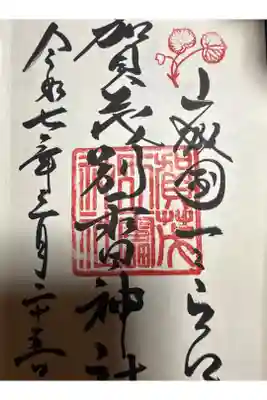 山城国一之宮
賀茂別雷神社
令和七年三月二十五日